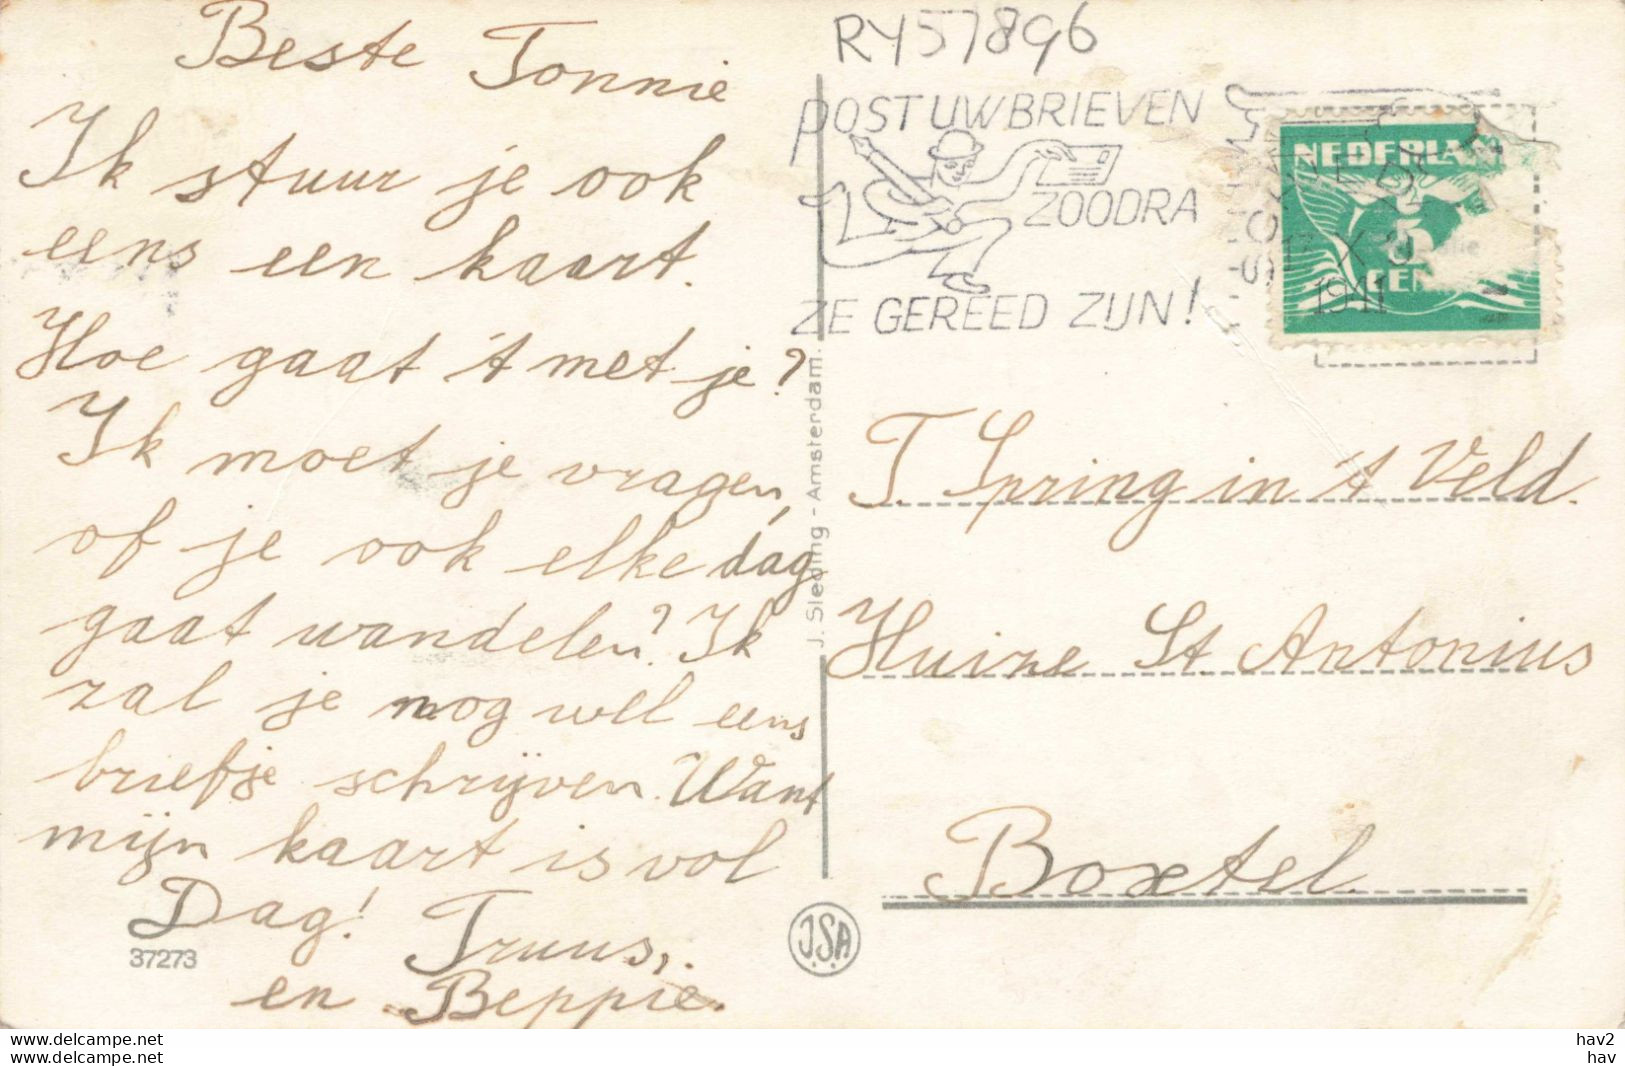 Beste Tonnie
Ik stuur je ook
eens een kaart.
Hoe gaat 't met je?
Ik moet je vragen,
of je ook elke dág
gaat wandelen? Ik
zal je nog wel eens
briefje schrijven. Want
mijn kaart is vol
Dag! Truus,
en Beppie.
37273
J. Sleding - Amsterdam.
J.S.A
RY57896
POST UW BRIEVEN
ZOODRA
ZE GEREED ZIJN!
1941
NEDERLAN
5
CEN
T. Spring in 't Veld.
Huize St. Antonius
Boxtel.
hav2
hav
hav2
hav